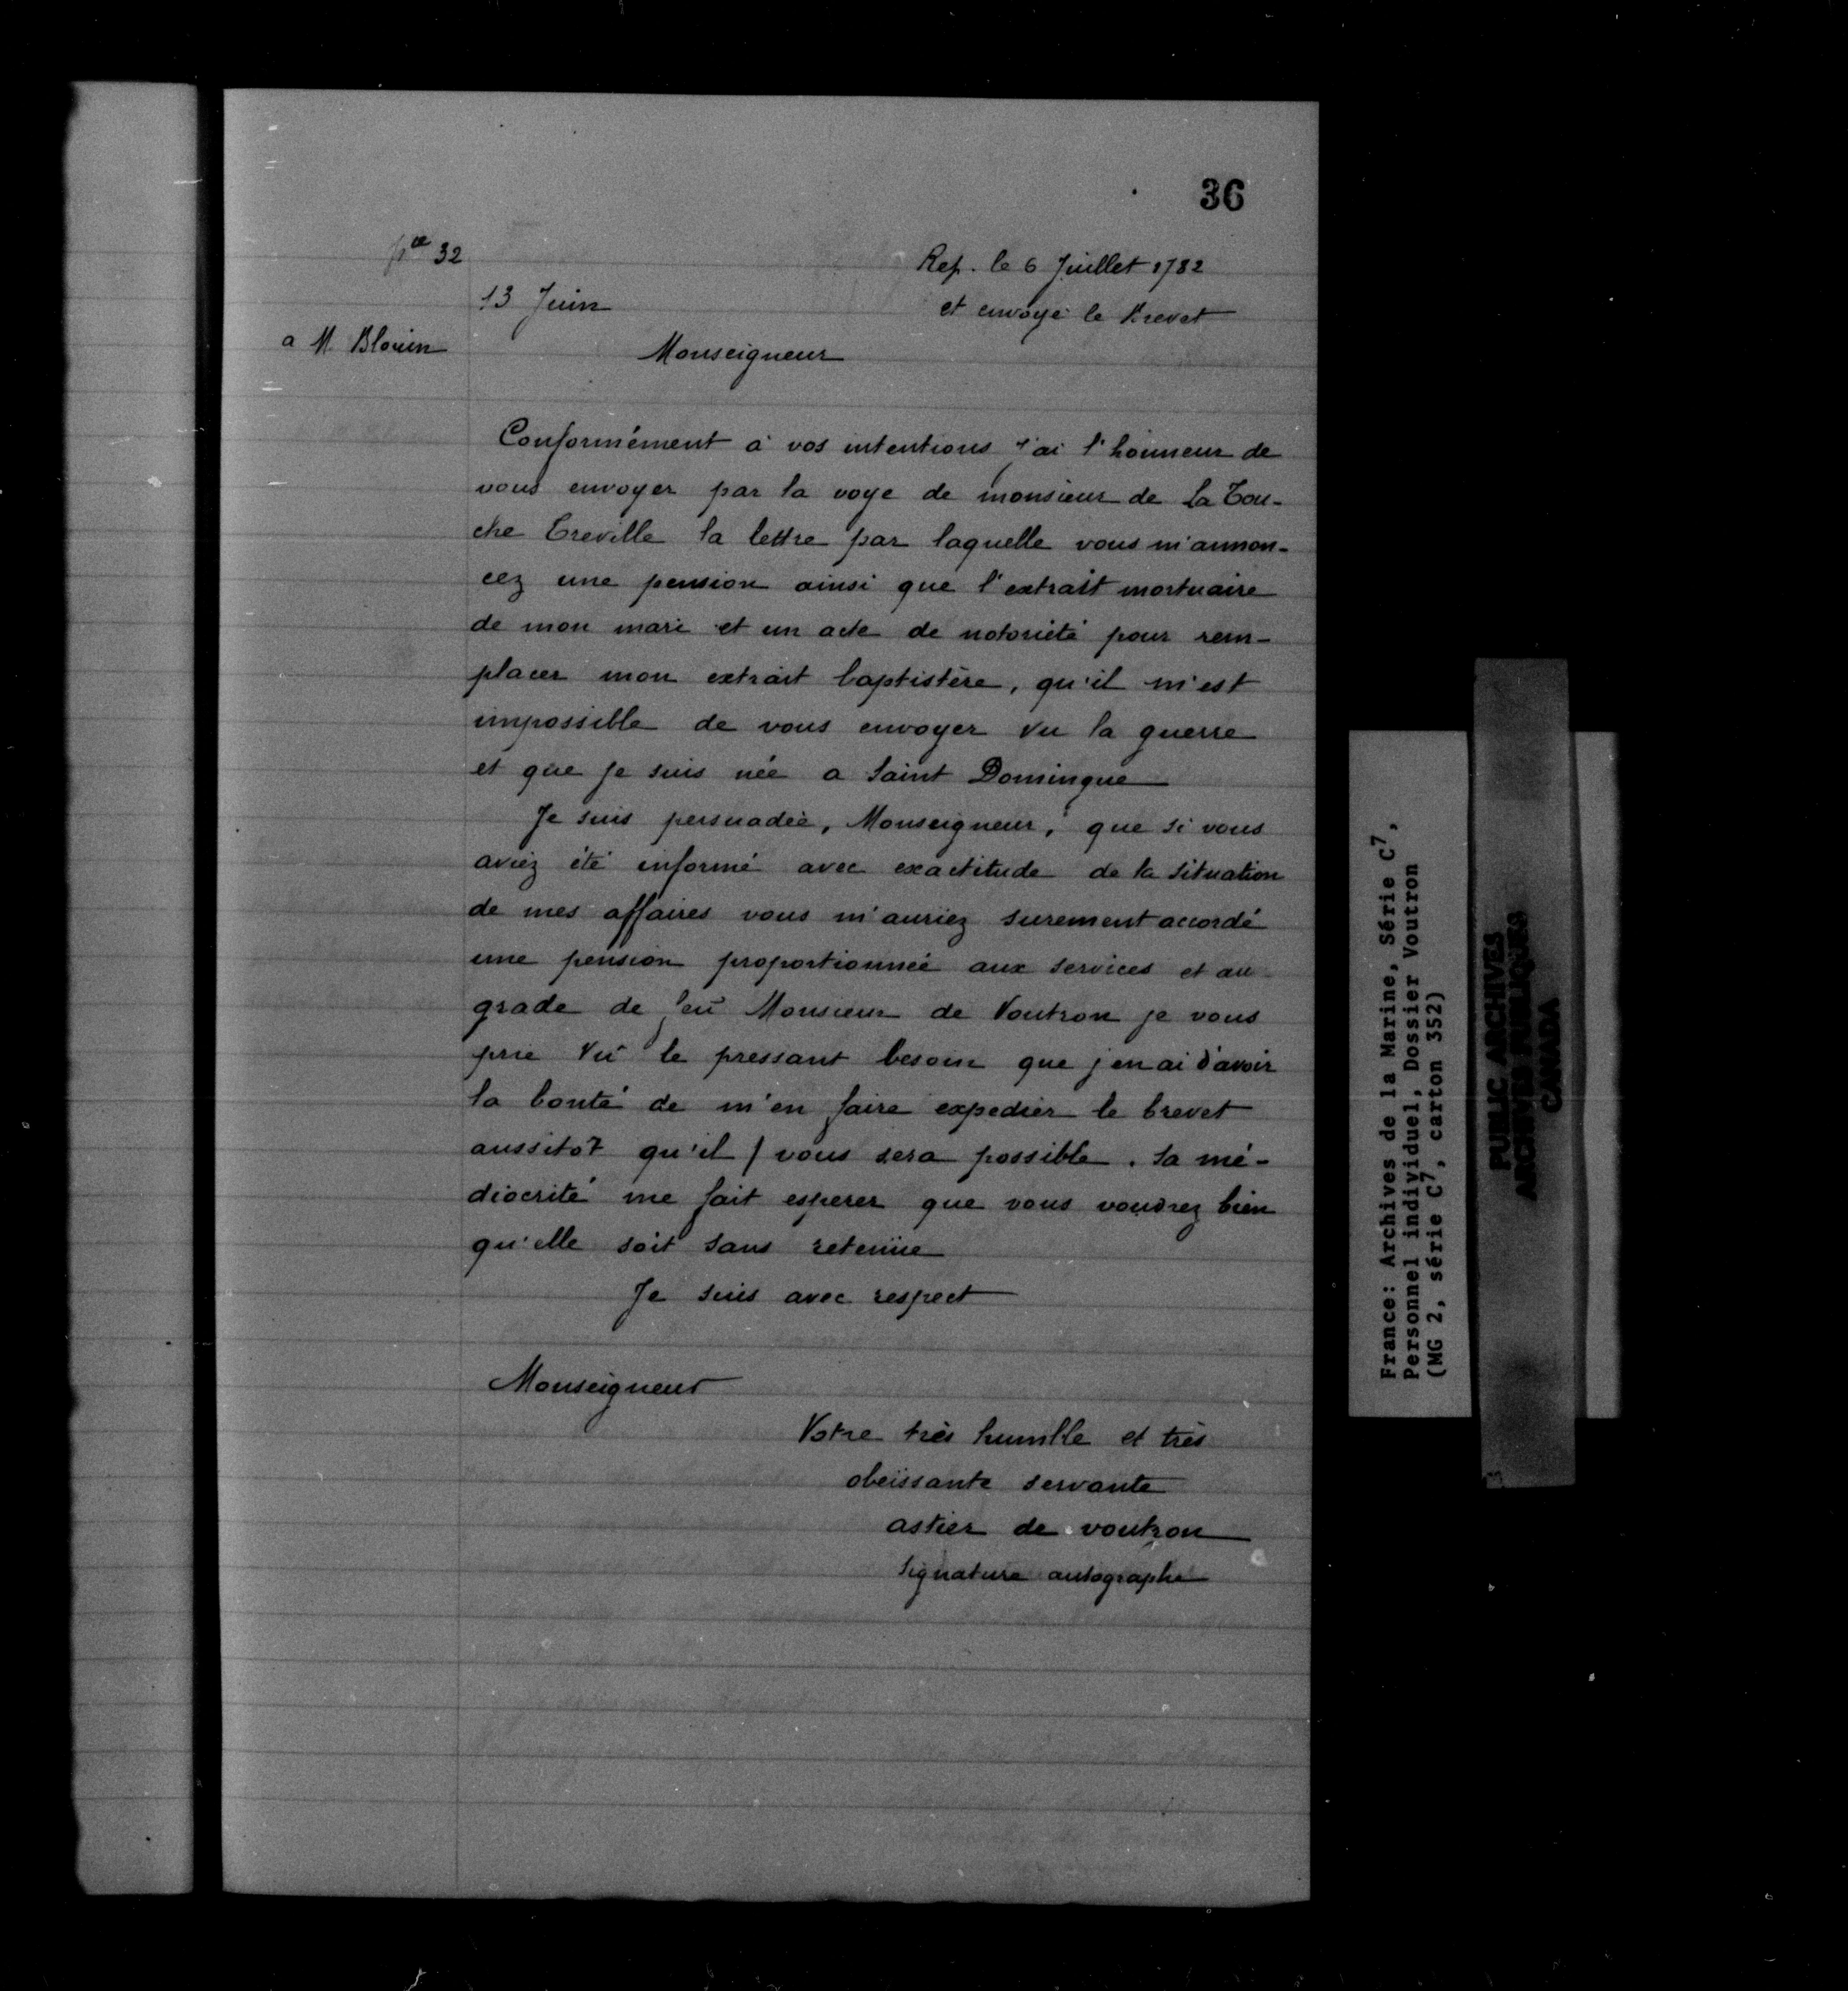 36
pce 32
Rep. le 6 Juillet 1782
13 Juin
et envoyé le Brevet
a M. Blouin
Monseigneur
Conformément à vos intentions j'ai l'honneur de
vous envoyer par la voye de monsieur de la Tou-
che Treville la lettre par laquelle vous m'annon-
cez une pension ainsi que l'extrait mortuaire
de mon mari et un acte de notoriété pour rem-
placer mon extrait baptistère, qu'il m'est
impossible de vous envoyer vu la guerre
et que je suis née a Saint Domingue
Je suis persuadée, Monseigneur, que si vous
aviéz été informé avec exactitude de la situation
de mes affaires vous m'auriez surement accordé
une pension proportionnée aux services et au
grade de feû Monsieur de Voutron je vous
prie vû le pressant besoin que j'en ai d'avoir
la bonté de m'en faire expedier le brevet
aussitot qu'il / vous sera possible. Sa mé-
diocrité me fait esperer que vous voudrez bien
qu'elle soit sans retenüe
Je suis avec respect
Monseigneur
Votre très humble et très
obeïssante servante
astier de voutron
Signature autographe
France: Archives de la Marine, Série C7,
Personnel individuel, Dossier Voutron
(MG 2, série C7, carton 352)
PUBLIC ARCHIVES
ARCHIVES PUBLIQUES
CANADA